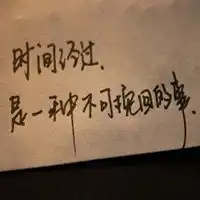 时间经过,
是一种不可挽回的事.